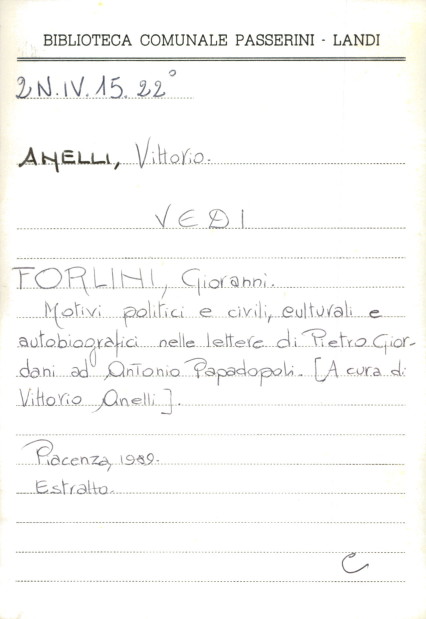 BIBLIOTECA COMUNALE PASSERINI - LANDI
2N.IV.15.22°
ANELLI, Vittorio.
VEDI
FORLINI, Giovanni.
Motivi politici e civili, culturali e
autobiografici nelle lettere di Pietro Gior-
dani ad Antonio Papadopoli. [A cura di
Vittorio Anelli].
Piacenza, 1989.
Estratto.
C